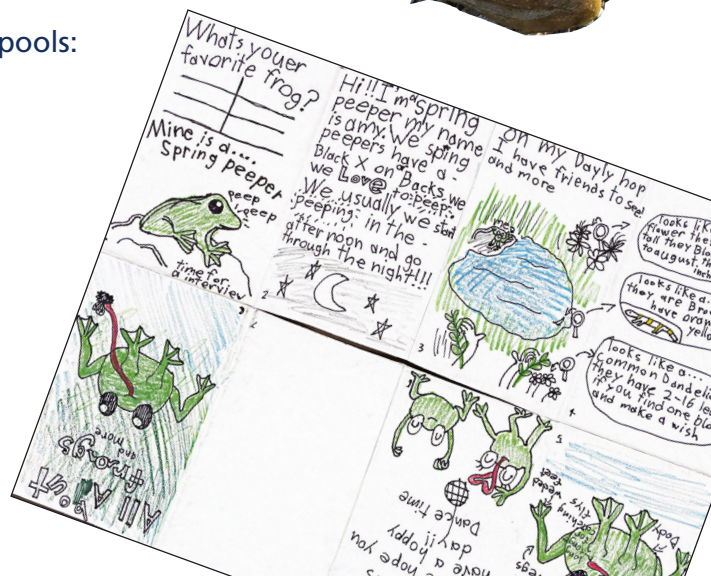 pools:
Whats youer
favorite frog?
Mine is a....
Spring peeper
peep
peep
time for
a interview
Hi!! I'm a spring
peeper my name
is amy. We sping
peepers have a
Black X on Backs we
we Love to peep.
We usually we start
peeping in the
after noon and go
through the night!!!!
2
on my Dayly hop
I have friends to see!
and more
3
looks lik
flower the
tall they Blo
to august. th
inch
looks like a.
they are Bro
have oran
yello
looks like a...
Common Dandeli
they have 2-16 le
if you find one blo
and make a wish
4
5
All A Bout
frongs
and more
Dance time
day!!
have a hoppy
hope you
weded
feet
catching
flys
Body
egs